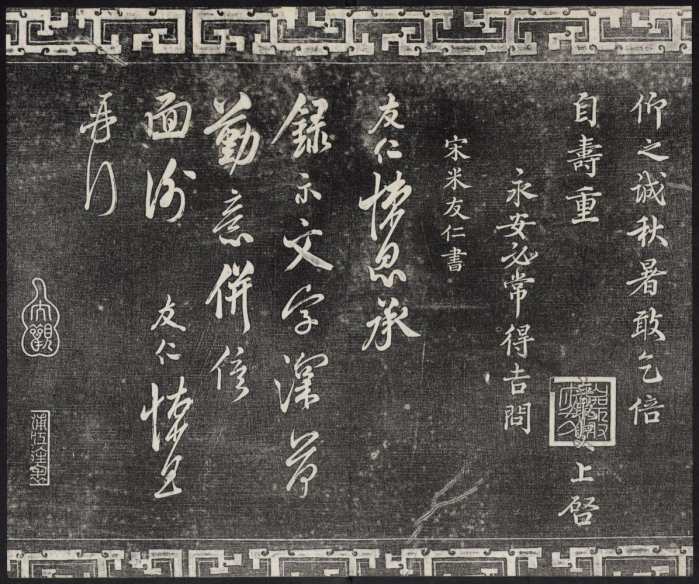 仰之诚秋暑敢乞倍
自壽重
上啓
永安必常得吉問
宋米友仁書
友仁悚息承
録示文字深荷
勤意併俟
面謝
友仁悚息
再行